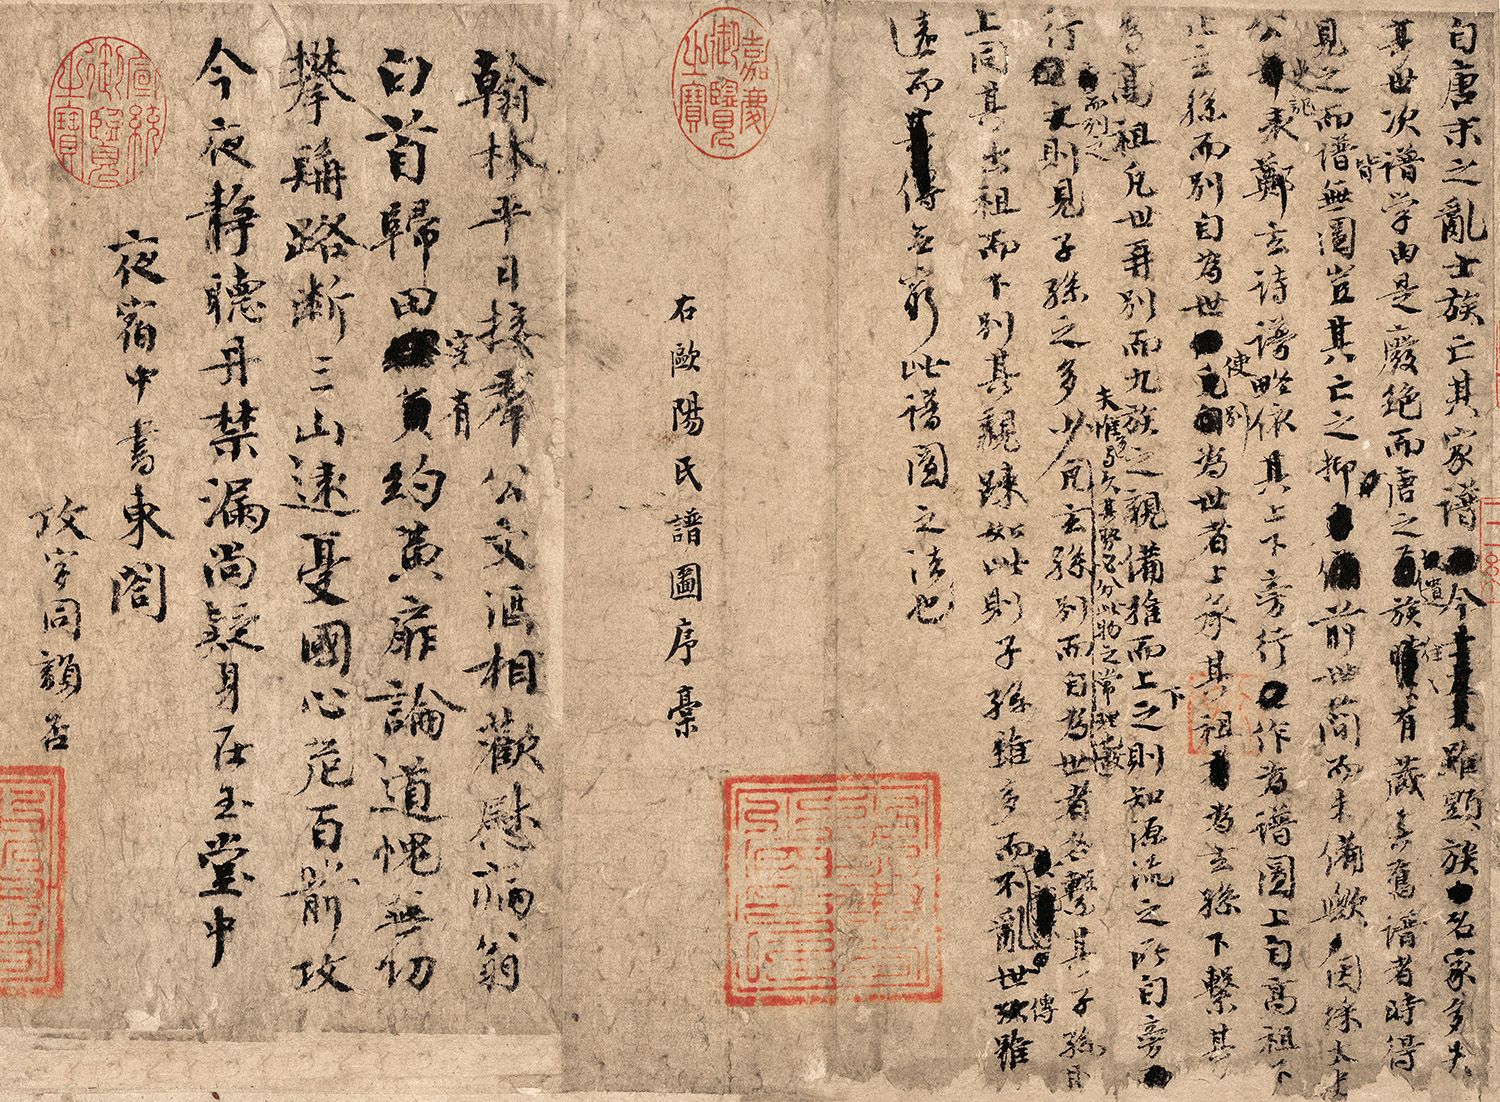 自唐末之亂士族亡其家譜今雖顯族名家多失
其世次譜学由是廢絕而唐之遺族往往有藏其舊譜者時得
見之而譜皆無圖豈其亡之抑前世簡而未備歟因採太史
公史記表鄭玄詩譜略依其上下旁行作為譜圖上自高祖下
止玄孫而別自為世使別為世者上承其祖為玄孫下繫其
為高祖凡世再別而九族之親備推而上下之則知源流之所自旁
行而列之則見子孫之多少夫惟多與久其勢必分此物之常理也凡玄孫別而自為世者各繫其子孫
上同其出祖而下別其親疎如此則子孫雖多而不亂世傳雖
遠而傳無窮此譜圖之法也
嘉慶御覽之寶
右歐陽氏譜圖序稾
翰林平日接羣公文酒相歡慰病翁
白首歸田空有約黃扉論道愧無功
攀髯路斷三山遠憂國心危百箭攻
今夜靜聽丹禁漏尚疑身在玉堂中
夜宿中書東閤
攻字同韻否
宣統御覽之寶